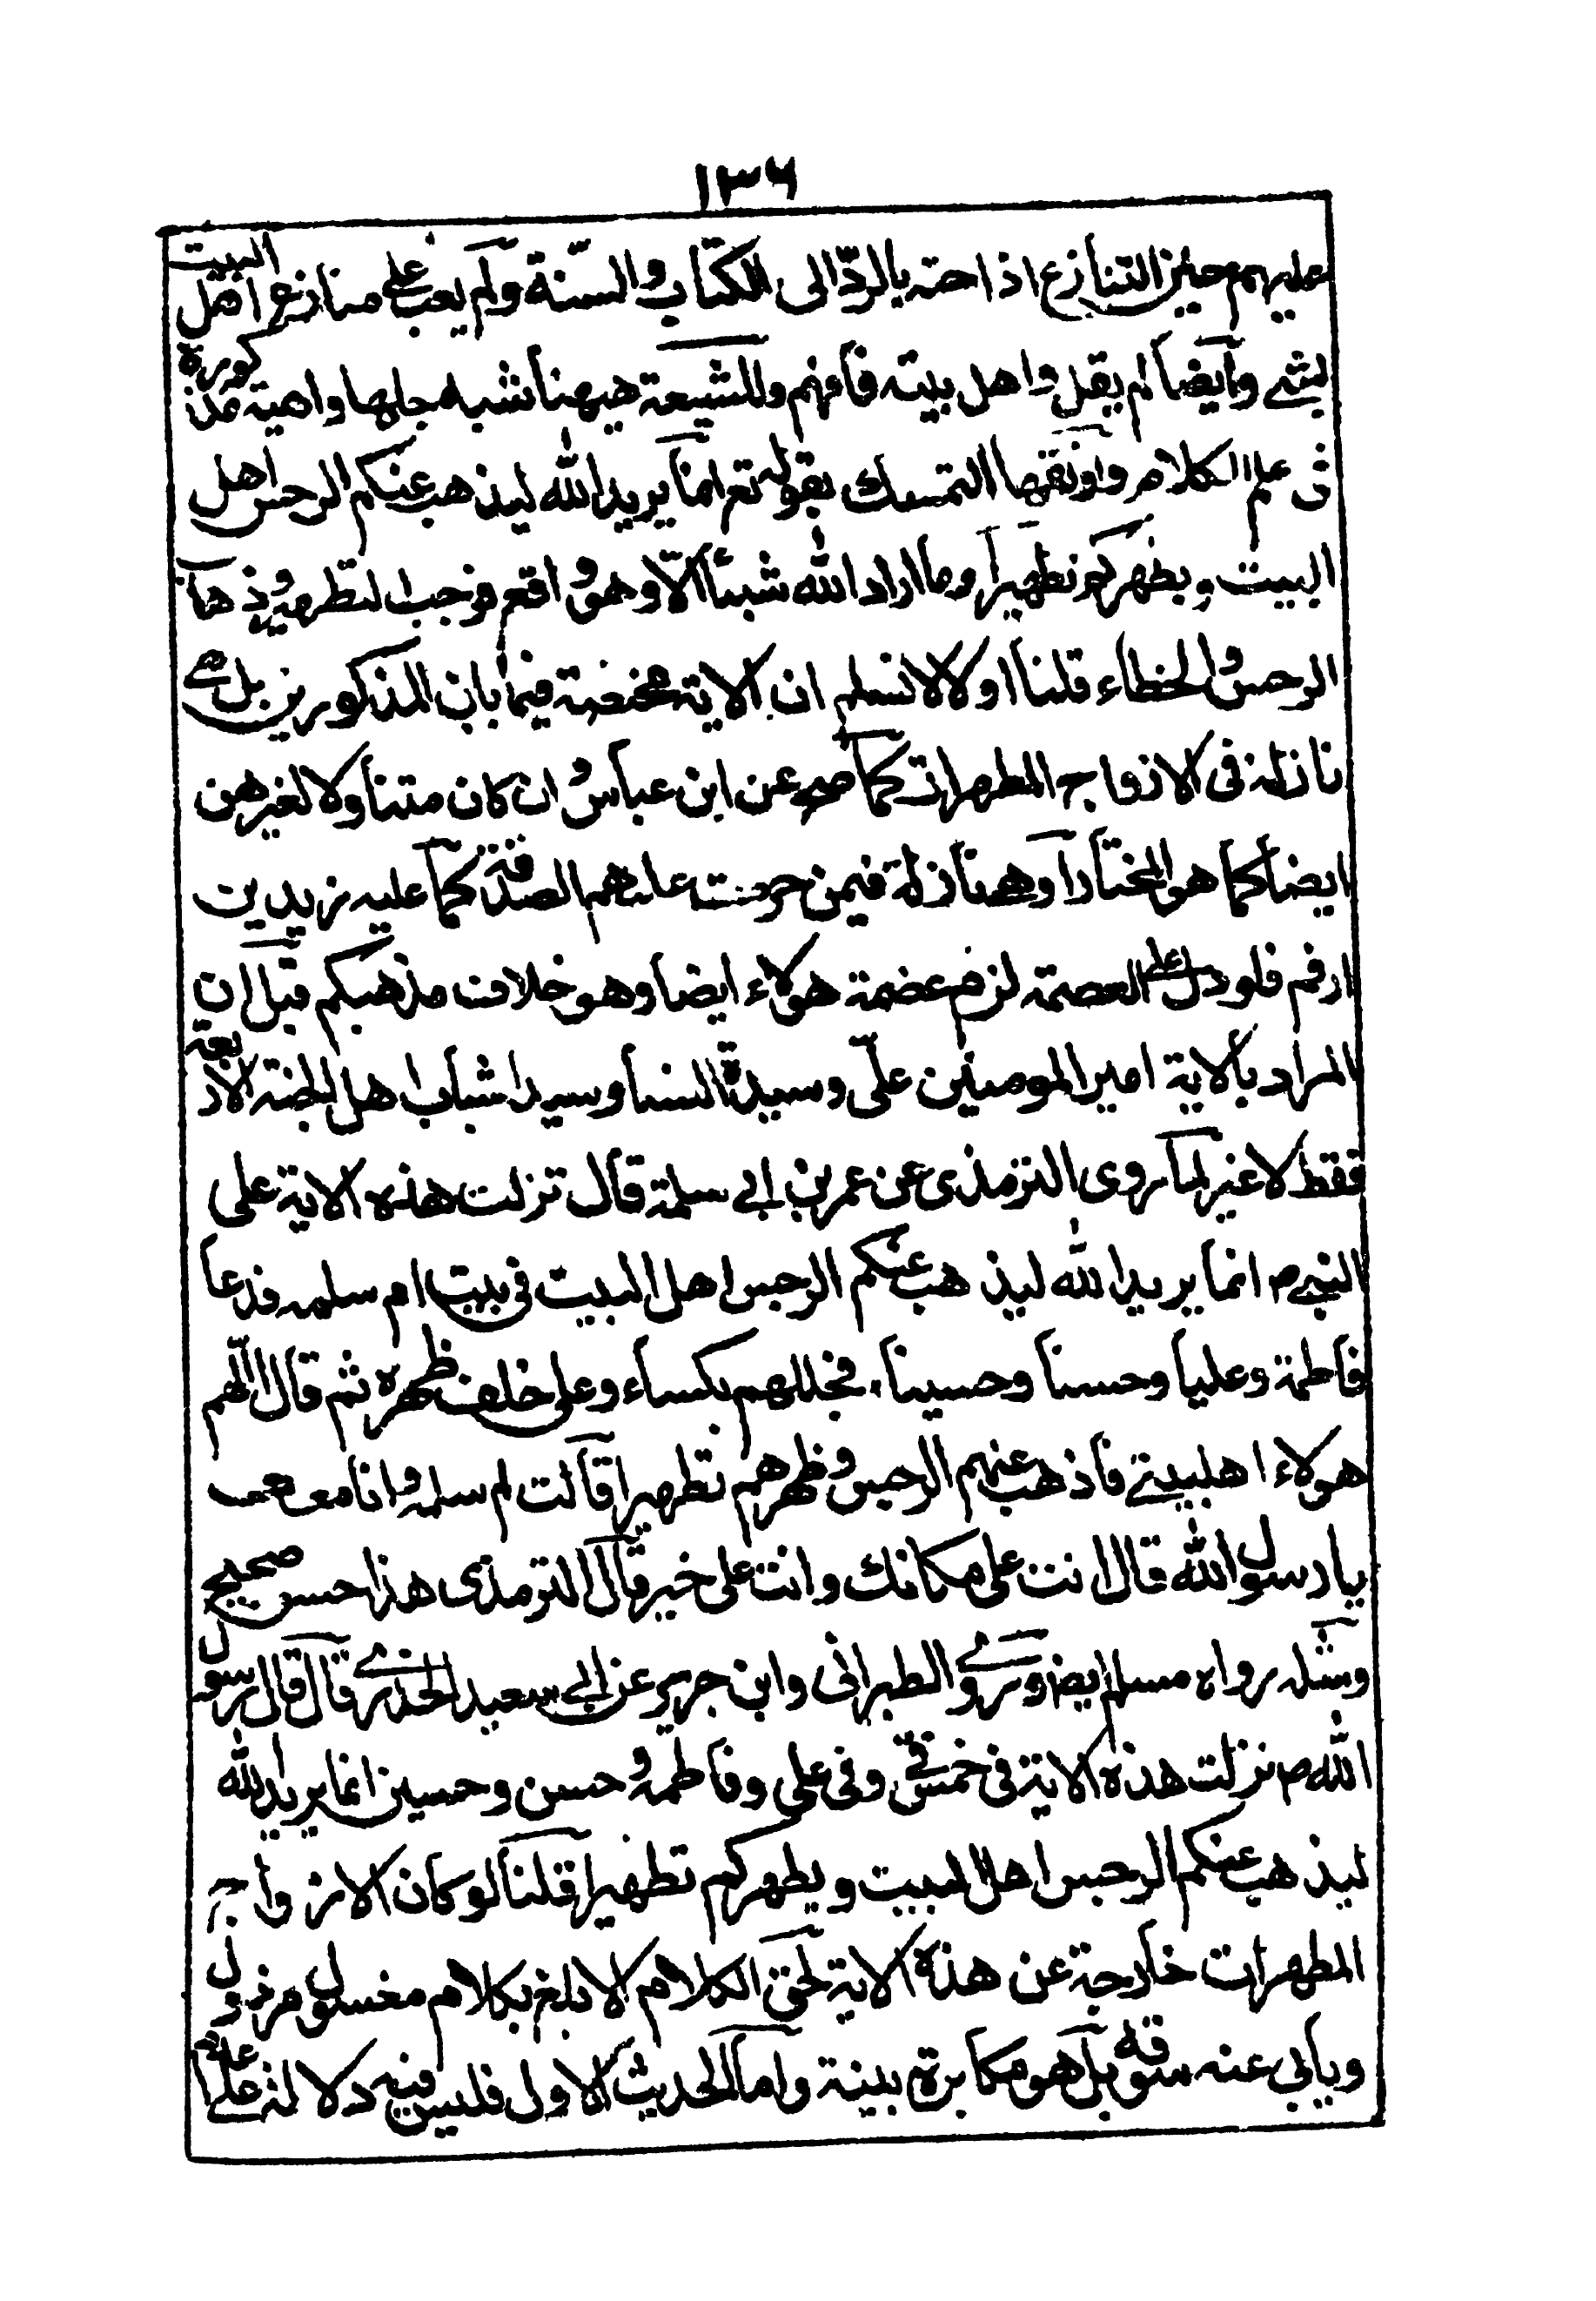 ١٣٦
عليهم حين التنازع اذا حتم بالردّ الى الكتاب والسّنة ولم يعب على منازع اهل البيت
بشئ وايضا لم يقل واهل بيته فافهم وللشيعة ههنا شبه جلها واهية مذكورة
فى علم الكلام واوثقها التمسك بقوله تعم انما يريد الله ليذهب عنكم الرجس اهل
البيت ويطهركم تطهيرا وما اراد الله شيئا الّا وهو واقع فوجب التطهير وذهاب
الرجس والخطاء قلنا اولا لا نسلم ان الاية مختصة فيما بان المذكورين بل هى
نازلة فى الازواج المطهرات كما صح عن ابن عباس وان كان متناولا لغيرهن
ايضا كما هو المختار او هى نازلة فيمن حرمت عليهم الصدقة كما عليه زيد بن
ارقم فلو دل على العصمة لزم عصمة هولاء ايضا وهو خلاف مذهبكم قبل ان
المراد بالاية امير المومنين علىّ وسيدة النسا وسيدا شباب اهل الجنة الاربعة
فقط لا غير لما روى الترمذى عن عمر بن ابى سلمة قال نزلت هذه الاية على
النبى م انما يريد الله ليذهب عنكم الرجس اهل البيت فى بيت ام سلمه فدعا
فاطمة وعليا وحسنا وحسينا فجللهم بكساء وعلى خلف ظهره ثم قال اللّهم
هولاء اهلبيتى فاذهب عنهم الرجس وطهرهم تطهيرا قالت ام سلمه وانا معهم
يا رسول الله قال انت على مكانك وانت على خير قال الترمذى هذا حسن صحيح
ومثله رواه مسلم ايضا وروى الطبرانى وابن جرير عن ابى سعيد الخدرى قال قال رسول
الله م نزلت هذه الاية فى خمسة فىّ وفى على وفاطمة وحسن وحسين انما يريد الله
ليذهب عنكم الرجس اهل البيت ويطهركم تطهيرا قلنا لو كان الازواج
المطهرات خارجة عن هذه الاية لحق الكلام الابلغ بكلام مغسول مرذول
ويابى عنه سوقه بل هو مكابرة بينة واما الحديث الاول فليس فيه دلالة على